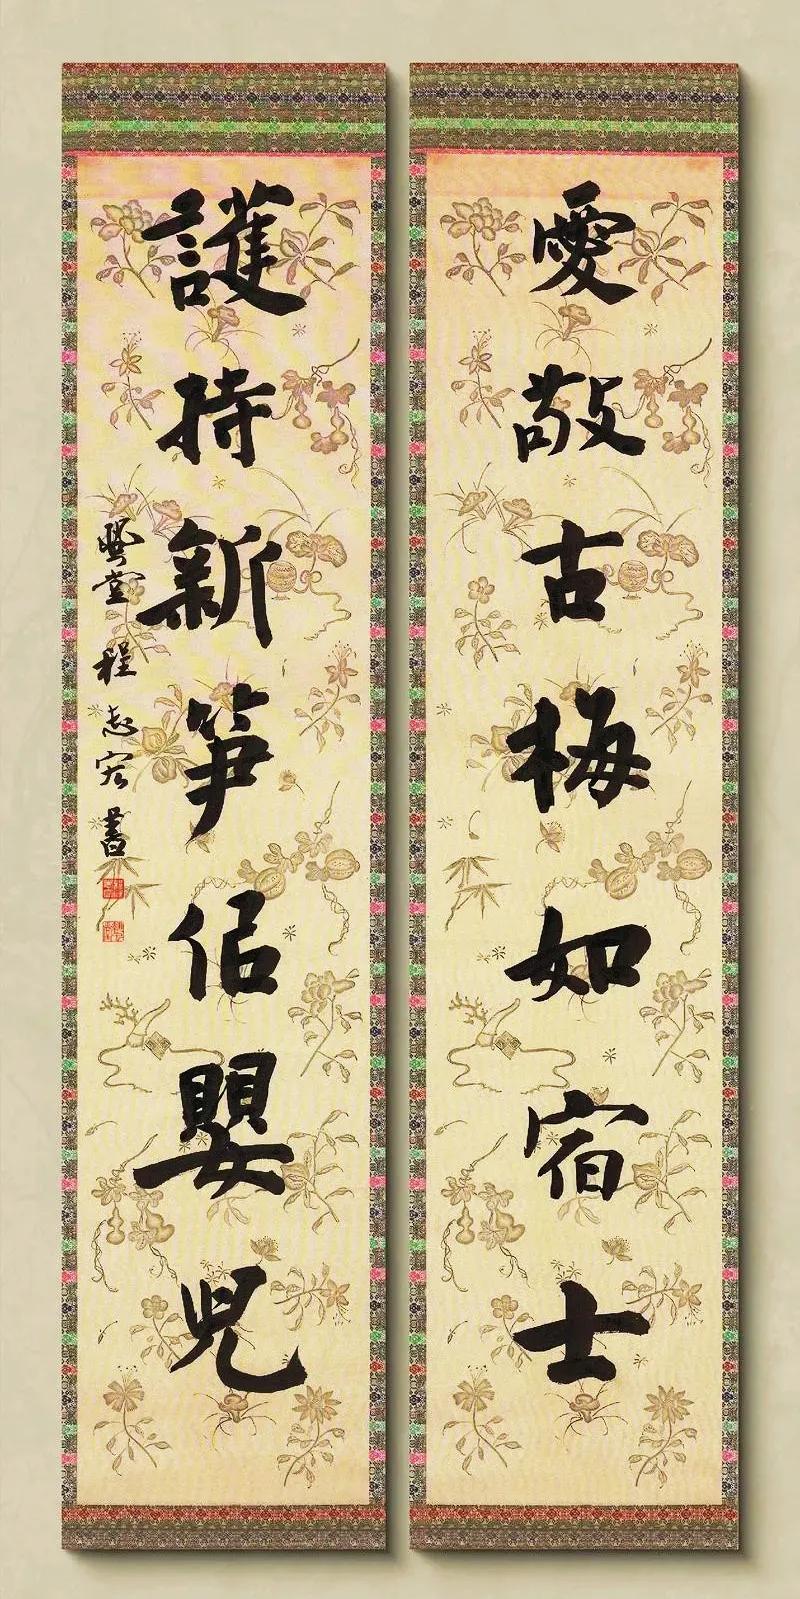 愛敬古梅如宿士
護持新笋佀嬰兒
堂程志宏書